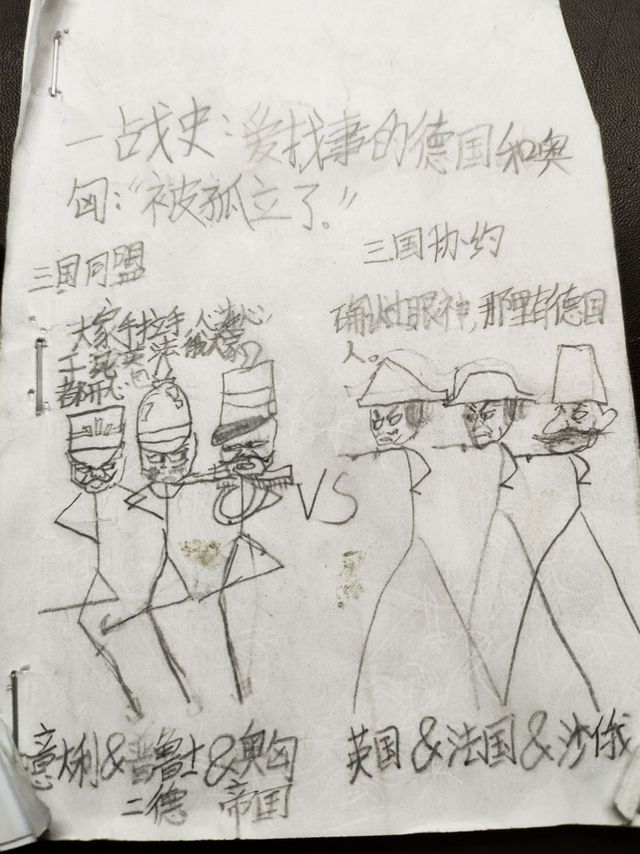 一战史：爱找事的德国和奥
匈：“被孤立了。”
三国同盟
大家手拉手，人连心，
干死英法俄大家
都开心
三国协约
确认过眼神，那里有德国
人。
VS
意大利&普鲁士&奥匈
二德 帝国
英国&法国&沙俄